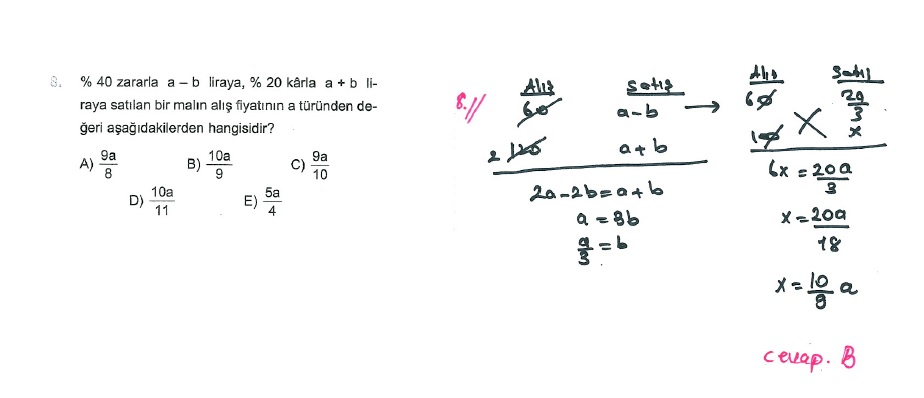 8. % 40 zararla a – b liraya, % 20 kârla a + b li-
raya satılan bir malın alış fiyatının a türünden de-
ğeri aşağıdakilerden hangisidir?
A) 9a/8 B) 10a/9 C) 9a/10
D) 10a/11 E) 5a/4
8.//
Alış Satış
60 a-b →
2 120 a+b
2a-2b=a+b
a=3b
a/3=b
Alış Satış
60 2a/3
100 x
6x=20a/3
x=20a/18
x=10/9 a
cevap. B